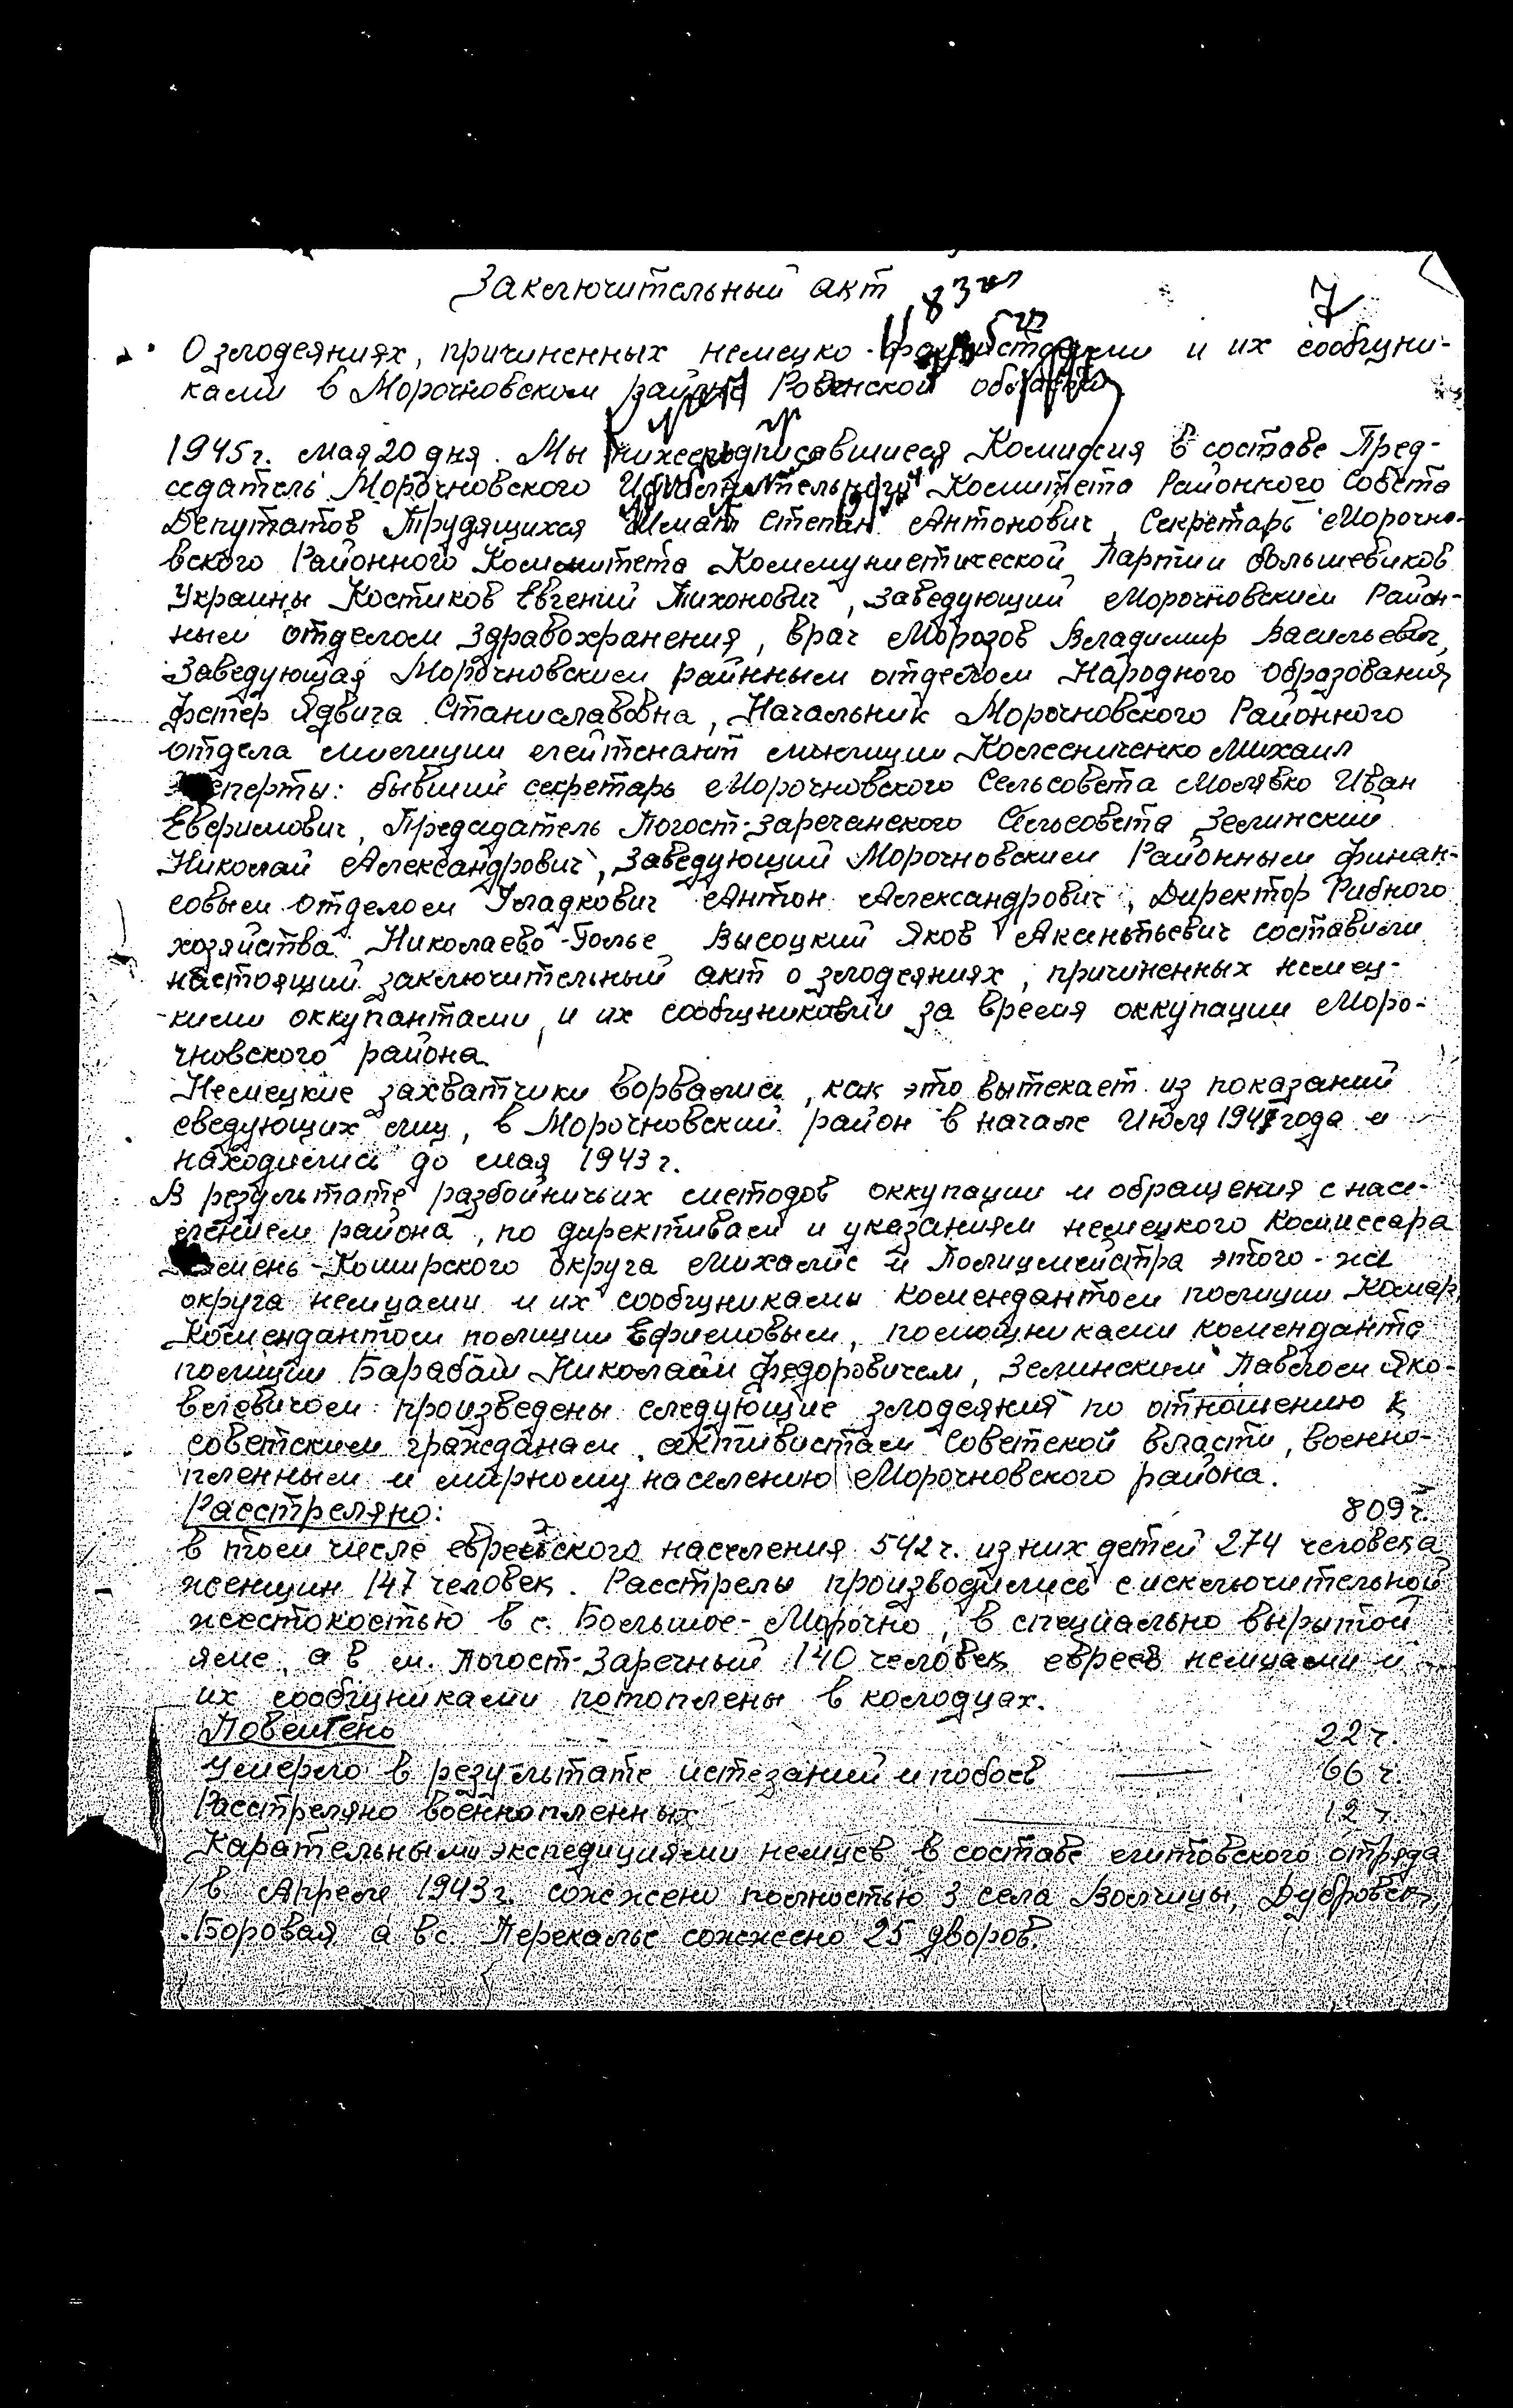 Заключительный акт
83
7
О злодеяниях, причиненных немецко-фашистскими и их сообщни-
ками в Морочновском районе Ровенской области
1945г. мая 20 дня. Мы нижеподписавшиеся Комиссия в составе Пред-
седатель Морочновского Исполнительного Комитета Районного Совета
Депутатов Трудящихся Степан Антонович, Секретарь Морочно-
вского Районного Комитета Коммунистической Партии большевиков
Украины Костиков Евгений Тихонович, Заведующий Морочновским Район-
ным отделом Здравохранения, врач Морозов Владимир Васильевич,
Заведующая Морочновским райнным отделом Народного Образования
Фстер Ядвига Станиславовна, Начальник Морочновского Районного
отдела милиции лейтенант милиции Колесниченко Михаил
Эксперты: бывший секретарь Морочновского Сельсовета Молявко Иван
Евфимович, Председатель Погост-Заречанского Сельсовета Зелинский
Николай Александрович, Заведующий Морочновским Районным финан-
совым отделом Уладкович Антон Александрович, Директор Рибного
хозяйства Николаево-Голье Высоцкий Яков Аксентьевич составили
настоящий заключительный акт о злодеяниях, причиненных немец-
кими оккупантами, и их сообщниками за время оккупации Моро-
чновского района.
Немецкие захватчики ворвались, как это вытекает из показаний
сведующих лиц, в Морочновский район в начале Июля 1941 года и
находились до мая 1943 г.
В результате разбойничьих методов оккупации и обращения с насе-
лением района, по директивам и указаниям немецкого Комиссара
Камень-Коширского округа Михалис и Полицмейстра этого-же
округа немцами и их сообщниками комендантом полиции Комар,
Комендантом полиции Ефимовым, помощниками коменданта
полиции Барабаш Николаем Федоровичем, Зелинским Павлом Яко-
влевичом произведены следующие злодеяния по отношению к
советским гражданам, активистам Советской власти, военно-
пленным и мирному населению Морочновского района.
Расстреляно: 809 ч.
в том числе еврейского населения 542 ч. из них детей 274 человека
женщин 147 человек. Расстрелы производились с исключительной
жестокостью в с. Большое-Морочно, в специально вырытой
яме, а в м. Погост-Заречный 140 человек евреев немцами и
их сообщниками потоплены в колодцах.
Повешено 22 ч.
Умерло в результате истезаний и побоев — 66 ч.
Расстреляно военнопленных — 12 ч.
Карательными экспедициями немцев в составе литовского отряда
в Апреле 1943 г. сожжено полностью 3 села Волчицы, Дубровск,
Боровая, а в с. Перекалье сожжено 25 дворов.